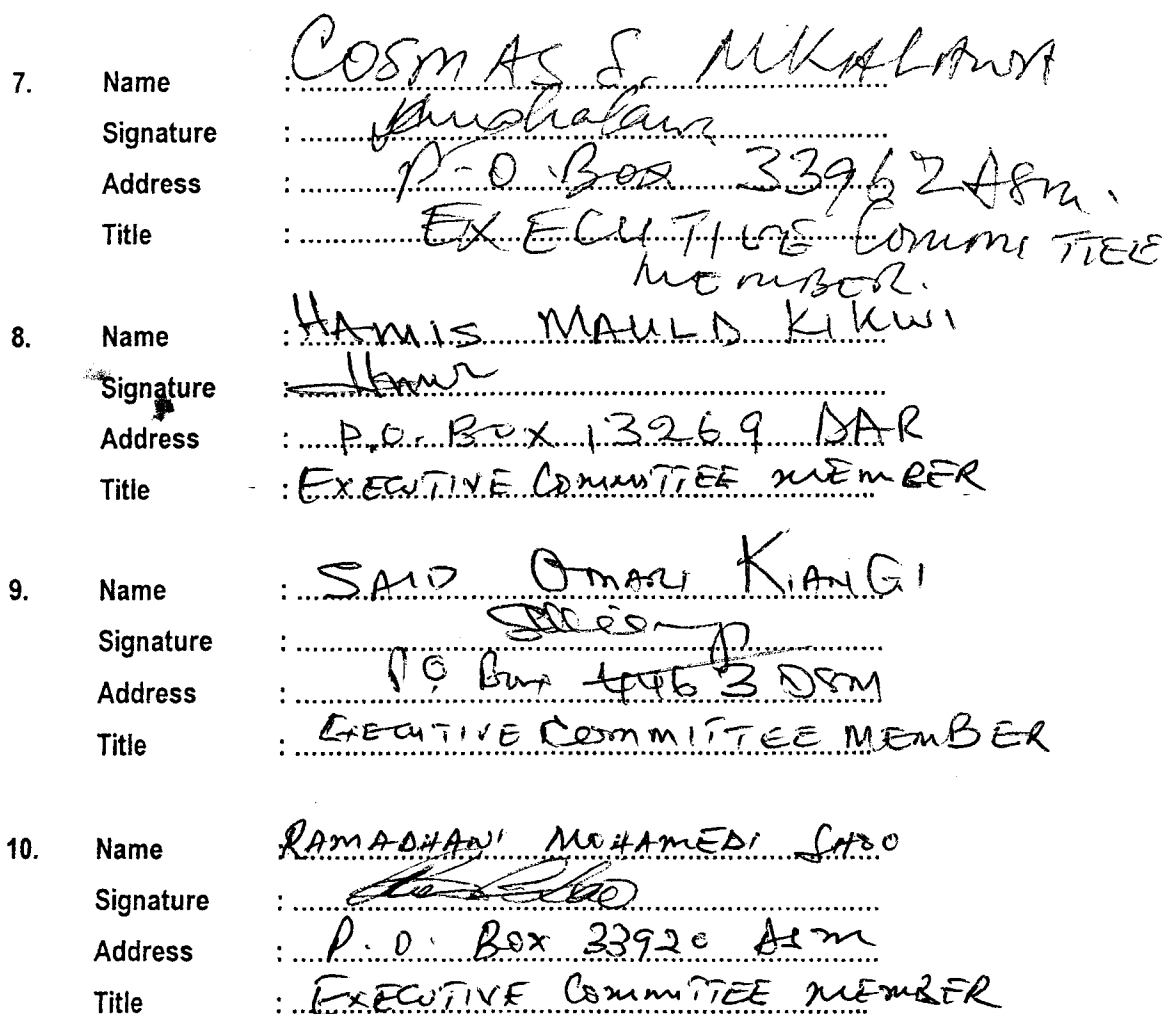 7. Name : COSMAS S. MKALAWA
Signature :
Address : P.O. Box 33962 DSM.
Title : EXECUTIVE COMMITTEE
MEMBER.
8. Name : HAMIS MAULD KIKWI
Signature : Hamis
Address : P.O. BOX 13269 DAR
Title : EXECUTIVE COMMITTEE MEMBER
9. Name : SAID OMARI KIANGI
Signature :
Address : P O Box 4463 DSM
Title : EXECUTIVE COMMITTEE MEMBER
10. Name RAMADHANI MOHAMEDI SHOO
Signature :
Address : P.O. Box 33920 DSM
Title : EXECUTIVE COMMITTEE MEMBER